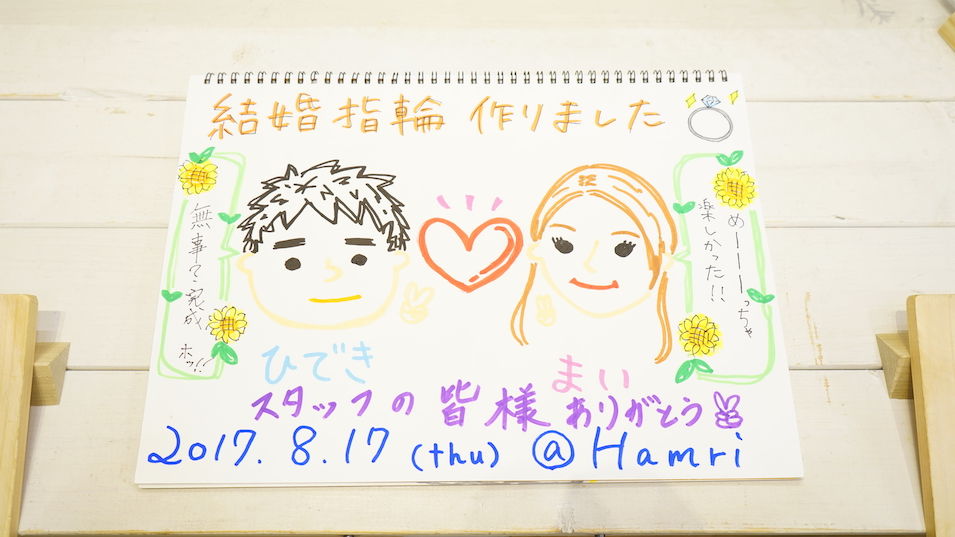 結婚指輪 作りました
無事完成
ホッ!!
めーーーっちゃ
楽しかった!!
ひでき
まい
スタッフの皆様ありがとう
2017.8.17 (thu) @Hamri